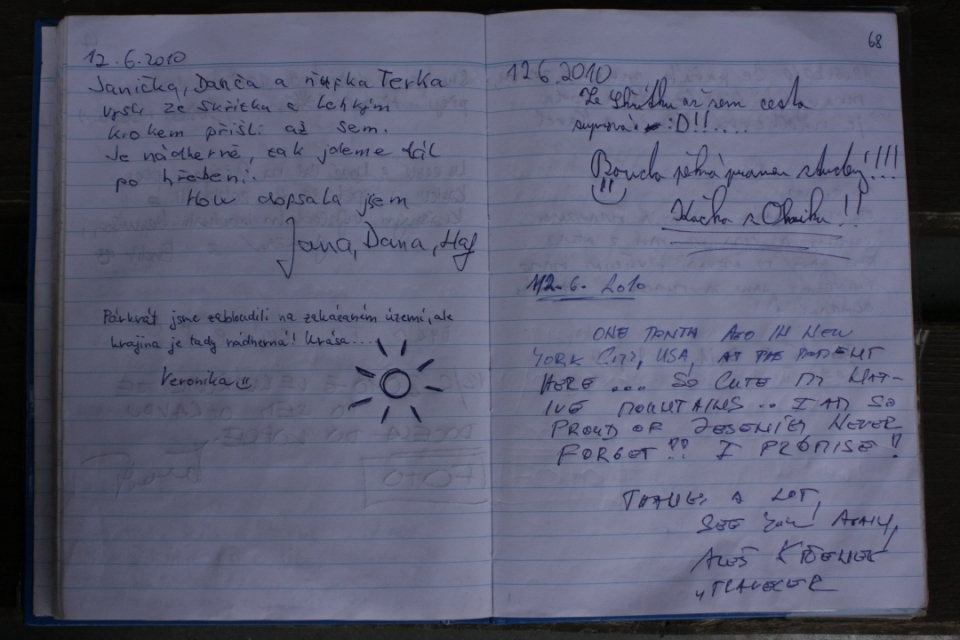 12.6.2010
Janička, Danča a ťupka Terka
vyšly ze Skřítka a lehkým
krokem přišli až sem.
Je nádherně, tak jdeme dál
po hřebeni.
How dopsala jsem
Jana, Dana, Haf
Párkrát jsme zabloudili na zakázaném území, ale
krajina je tady nádherná! Krása....
Veronika
68
12.6.2010
Ze Skřítku až sem cesta
:D!!....
Bouda pěkná pramen studený!!!!
Kačka z !!
12.6.2010
ONE MONTH AGO IN NEW
YORK CITY, USA, AT THE MOMENT
HERE .... SO CUTE MY NAT-
IVE MOUNTAINS... I AM SO
PROUD OF JESENÍKY NEVER
FORGET!! I PROMISE!!
THANKS A LOT,
SEE YOU AGAIN,
ALEŠ
"TRAVELER